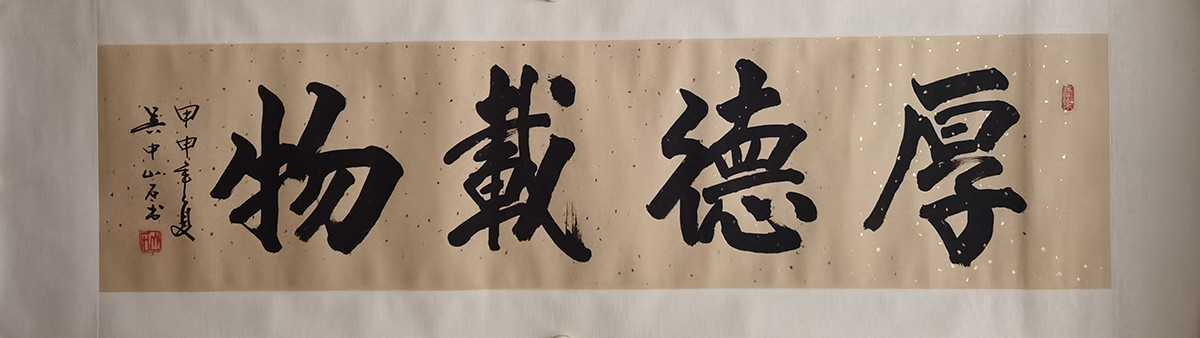 厚德載物
甲申年夏
吴中山石书